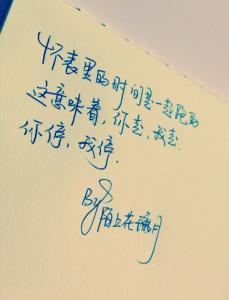 怀表里的时间是一起跑的
这意味着，你走，我走.
你停，我停.
By 陌上花